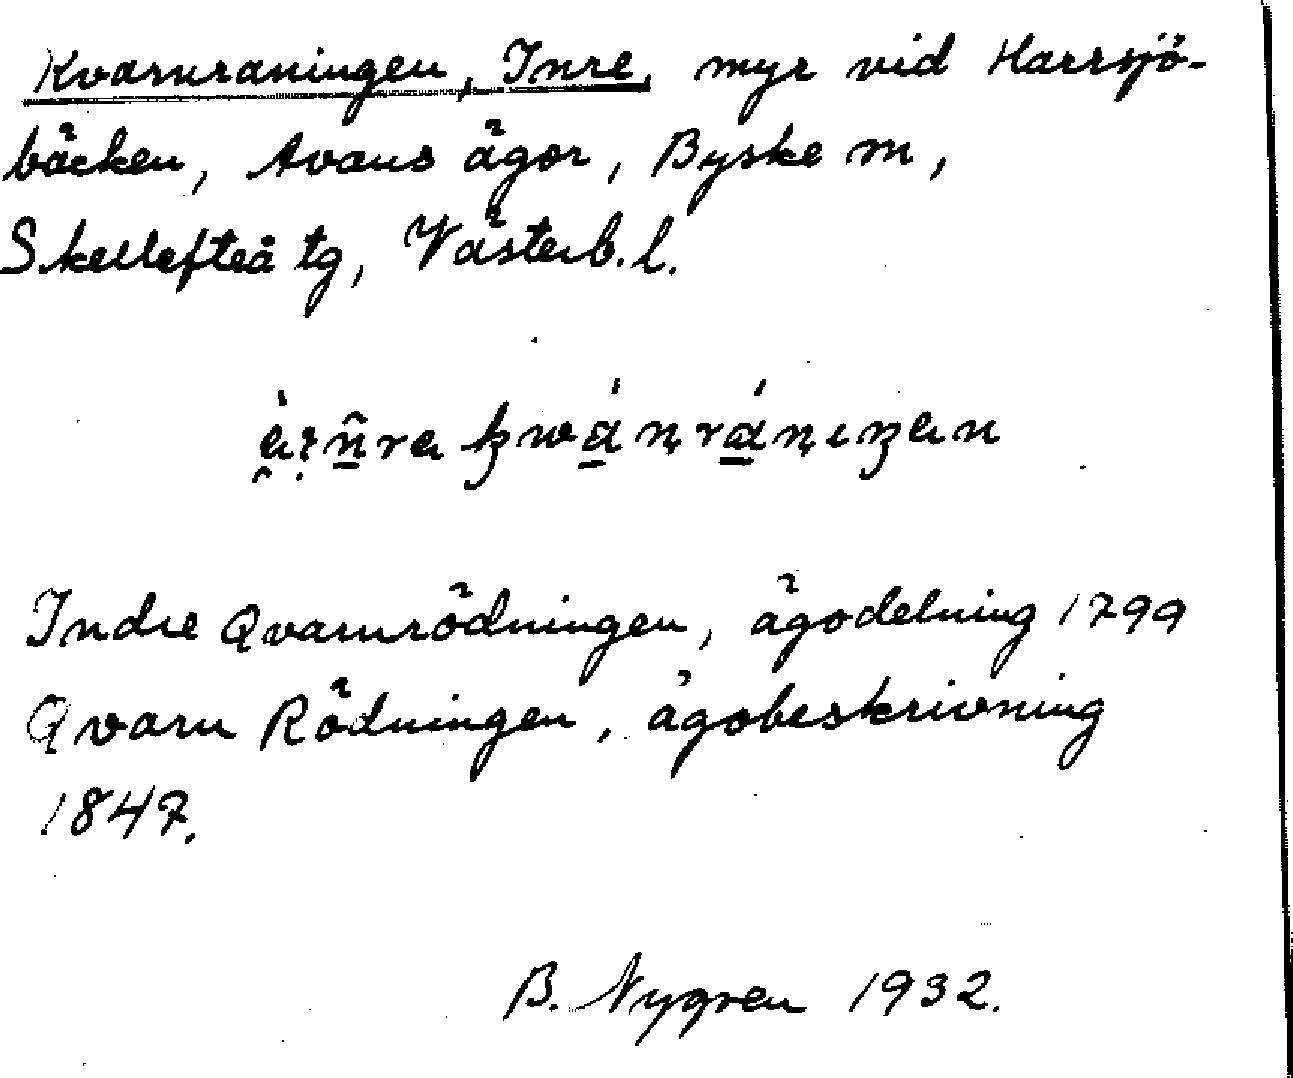 Kvarnraningen, Inre, myr vid Harrsjö-
bäcken, Avans ägor, Byske sn,
Skellefteå tg, Västerb. l.
Indre Qvarnrödningen, ägodelning 1799
Qvarn Rödningen, ägobeskrivning
1847.
B. Nygren 1932.